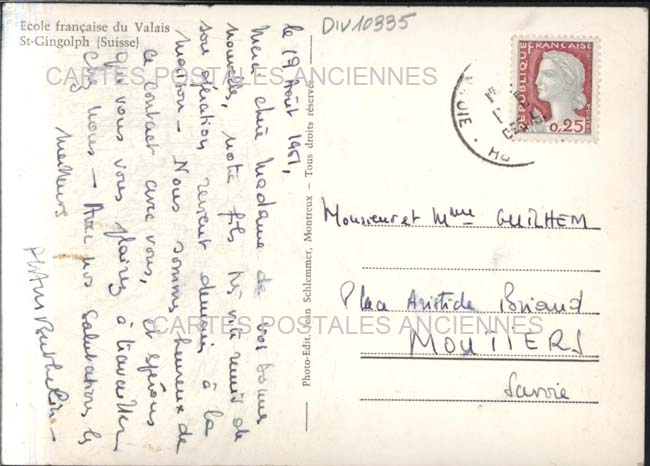 Ecole française du Valais
St-Gingolph (Suisse)
DIV10335
CARTES POSTALES ANCIENNES
CARTES POSTALES ANCIENNES
REPUBLIQUE FRANÇAISE
0,25
le 19 Août 1961,
Merci chère Madame de vos bonnes
nouvelles, notre fils très vite remis de
son opération revient demain à la
maison - Nous sommes heureux de
ce contact avec vous, et espérons
que vous vous plairez à travailler
chez nous - Avec nos salutations les
meilleurs
Photo-Edit. Jean Schlemmer, Montreux - Tous droits réservés
Monsieur et Mme GUILHEM
Place Aristide Briand
MOUTIERS
Savoie